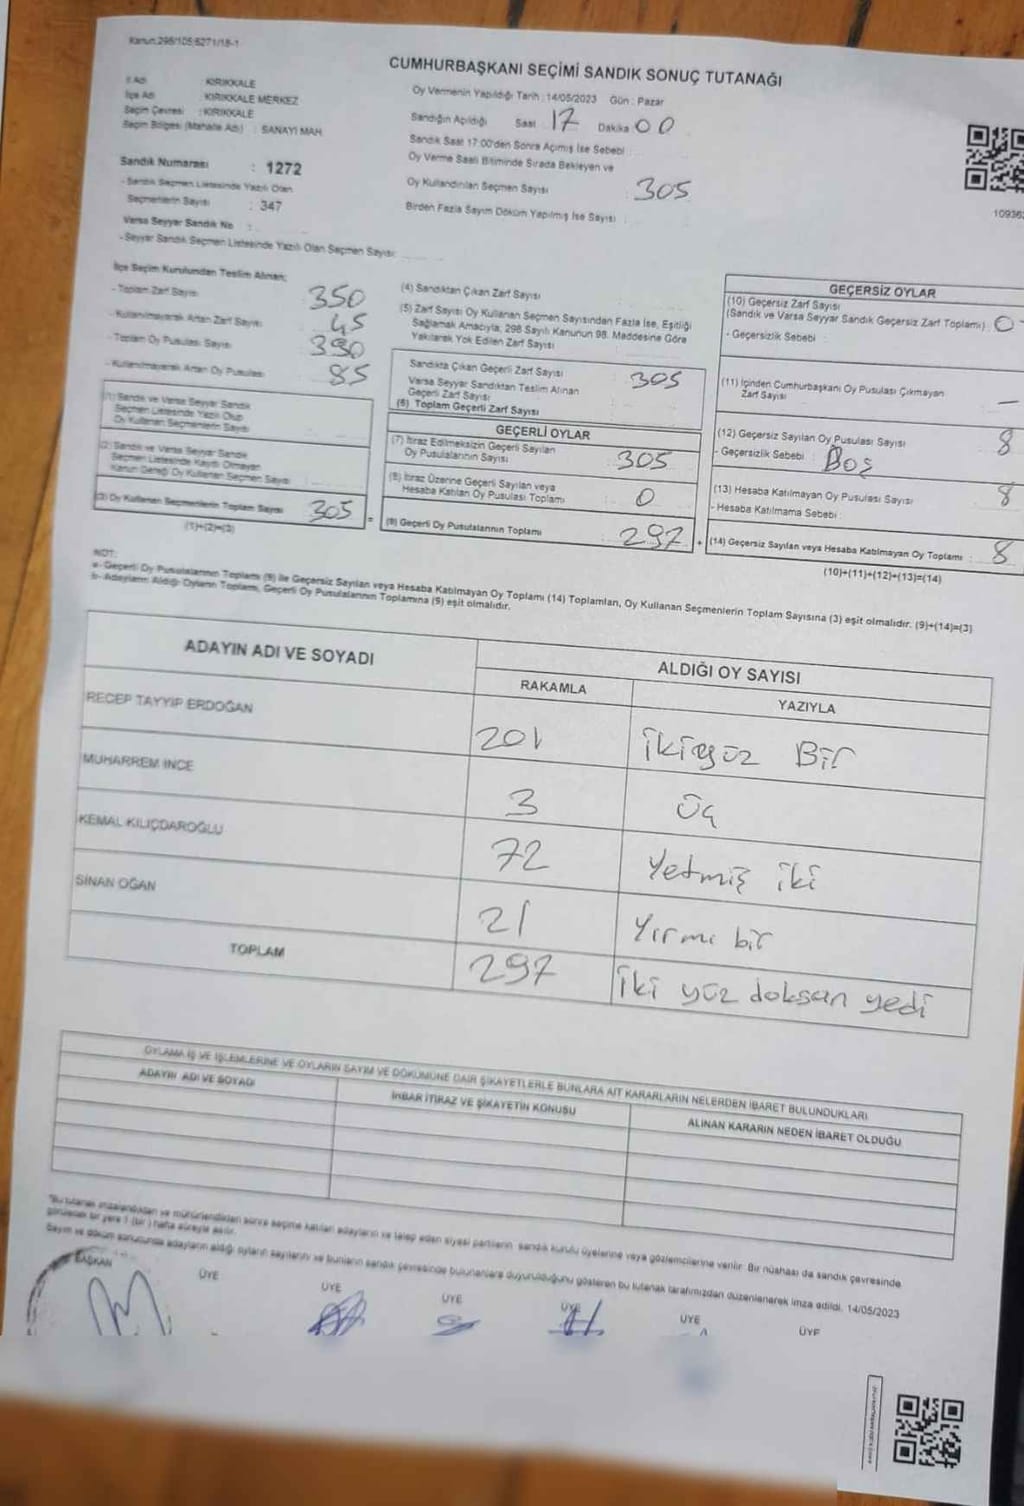 Kanun:298/105;6271/18-1
CUMHURBAŞKANI SEÇİMİ SANDIK SONUÇ TUTANAĞI
İl Adı : KIRIKKALE
İlçe Adı : KIRIKKALE MERKEZ
Seçim Çevresi : KIRIKKALE
Seçim Bölgesi (Mahalle Adı) : SANAYİ MAH.
Oy Vermenin Yapıldığı Tarih : 14/05/2023 Gün : Pazar
Sandığın Açıldığı Saat : 17 Dakika 00
Sandık Saat 17:00'den Sonra Açılmış İse Sebebi :
Oy Verme Saati Bitiminde Sırada Bekleyen ve
Oy Kullandırılan Seçmen Sayısı : 305
Birden Fazla Sayım Döküm Yapılmış İse Sayısı :
Sandık Numarası : 1272
- Sandık Seçmen Listesinde Yazılı Olan
Seçmenlerin Sayısı : 347
Varsa Seyyar Sandık No :
- Seyyar Sandık Seçmen Listesinde Yazılı Olan Seçmen Sayısı:
10936
İlçe Seçim Kurulundan Teslim Alınan;
- Toplam Zarf Sayısı 350
- Kullanılmayarak Artan Zarf Sayısı 45
- Toplam Oy Pusulası Sayısı 390
- Kullanılmayarak Artan Oy Pusulası 85
(1) Sandık ve Varsa Seyyar Sandık
Seçmen Listesinde Yazılı Olup
Oy Kullanan Seçmenlerin Sayısı
(2) Sandık ve Varsa Seyyar Sandık
Seçmen Listesinde Kaydı Olmayan
Kanun Gereği Oy Kullanan Seçmen Sayısı
(3) Oy Kullanan Seçmenlerin Toplam Sayısı 305
(1)+(2)=(3)
(4) Sandıktan Çıkan Zarf Sayısı
(5) Zarf Sayısı Oy Kullanan Seçmen Sayısından Fazla İse, Eşitliği
Sağlamak Amacıyla, 298 Sayılı Kanunun 98. Maddesine Göre
Yakılarak Yok Edilen Zarf Sayısı
Sandıkta Çıkan Geçerli Zarf Sayısı : 305
Varsa Seyyar Sandıktan Teslim Alınan
Geçerli Zarf Sayısı
(6) Toplam Geçerli Zarf Sayısı
GEÇERLİ OYLAR
(7) İtiraz Edilmeksizin Geçerli Sayılan
Oy Pusulalarının Sayısı : 305
(8) İtiraz Üzerine Geçerli Sayılan veya
Hesaba Katılan Oy Pusulası Toplamı : 0
= (9) Geçerli Oy Pusulalarının Toplamı : 297 +
GEÇERSİZ OYLAR
(10) Geçersiz Zarf Sayısı
(Sandık ve Varsa Seyyar Sandık Geçersiz Zarf Toplamı) : 0
- Geçersizlik Sebebi :
(11) İçinden Cumhurbaşkanı Oy Pusulası Çıkmayan
Zarf Sayısı : —
(12) Geçersiz Sayılan Oy Pusulası Sayısı : 8
- Geçersizlik Sebebi : Boş
(13) Hesaba Katılmayan Oy Pusulası Sayısı : 8
- Hesaba Katılmama Sebebi :
(14) Geçersiz Sayılan veya Hesaba Katılmayan Oy Toplamı : 8
(10)+(11)+(12)+(13)=(14)
NOT:
a- Geçerli Oy Pusulalarının Toplamı (9) ile Geçersiz Sayılan veya Hesaba Katılmayan Oy Toplamı (14) Toplamları, Oy Kullanan Seçmenlerin Toplam Sayısına (3) eşit olmalıdır. (9)+(14)=(3)
b- Adayların Aldığı Oyların Toplamı, Geçerli Oy Pusulalarının Toplamına (9) eşit olmalıdır.
ADAYIN ADI VE SOYADI
ALDIĞI OY SAYISI
RAKAMLA YAZIYLA
RECEP TAYYİP ERDOĞAN 201 ikiyüz Bir
MUHARREM İNCE 3 Üç
KEMAL KILIÇDAROĞLU 72 Yetmiş iki
SİNAN OĞAN 21 Yırmı bir
TOPLAM 297 iki yüz doksan yedi
OYLAMA İŞ VE İŞLEMLERİNE VE OYLARIN SAYIM VE DÖKÜMÜNE DAİR ŞİKAYETLERLE BUNLARA AİT KARARLARIN NELERDEN İBARET BULUNDUKLARI
ADAYIN ADI VE SOYADI İHBAR İTİRAZ VE ŞİKAYETİN KONUSU ALINAN KARARIN NEDEN İBARET OLDUĞU
"Bu tutanak imzalandıktan ve mühürlendikten sonra seçime katılan adayların ve talep eden siyasi partilerin sandık kurulu üyelerine veya gözlemcilerine verilir. Bir nüshası da sandık çevresinde
görülecek bir yere 1 (bir) hafta süreyle asılır.
Sayım ve döküm sonucunda adayların aldığı oyların sayılarını ve bunların sandık çevresinde bulunanlara duyurulduğunu gösteren bu tutanak tarafımızdan düzenlenerek imza edildi. 14/05/2023
BAŞKAN ÜYE ÜYE ÜYE ÜYE ÜYE ÜYE